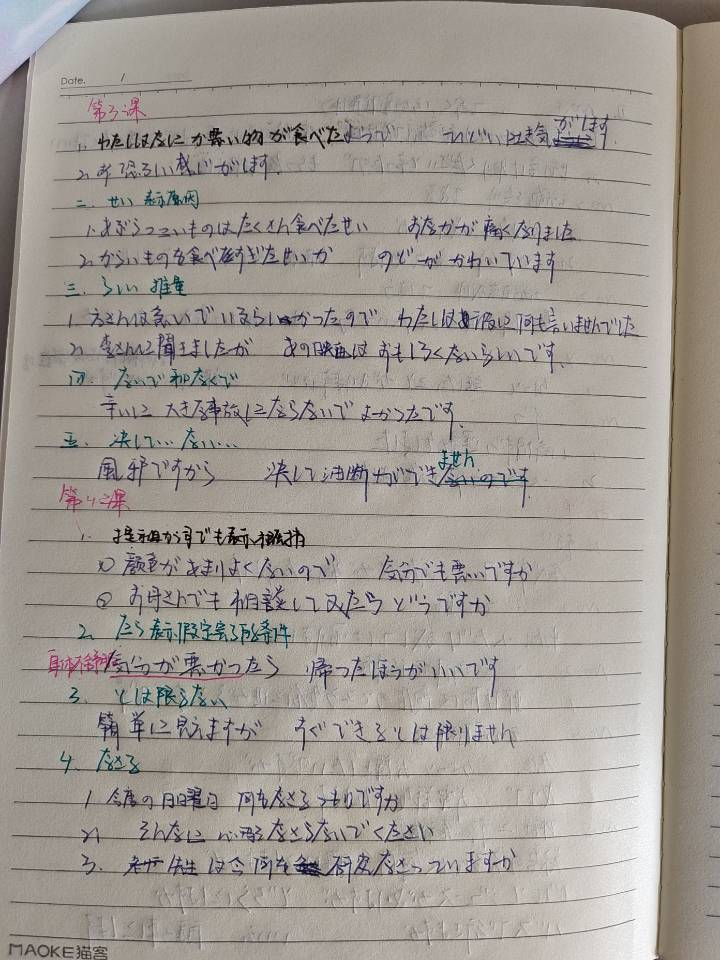 Date. /
第3课
1. わたしはなにか悪い物が食べたようで 気がします.
2. 恐ろしい感じがします.
二. せい 表示原因
1. あぶらっこいものはたくさん食べたせい おなかが痛くなりました
2. からいものを食べすぎたせいか のどがかわいています
三. らしい 推量
1. さんは急いでいるらしかったので わたしは 何も言いませんでした
2. 李さんに聞きましたが あの映画はおもしろくないらしいです.
四. ないで和なくて
幸いに 大きな事故にならないで よかったです.
五. 决して... ない...
風邪ですから 决して油断ができません
第4课
1. 提示 でも表示
① 顔色があまりよくないので 気分でも悪いですか
② お母さんでも相談して見たらどうですか
2. たら表示假定完了的条件
身体不舒服 気分が悪かったら 帰ったほうがいいです
3. とは限らない
簡単に見えますが すぐできるとは限りません
4. なさる
1 今度の日曜日 何をなさるつもりですか
2. そんなに心配なさらないでください
3. 先生は今何を研究なさっていますか
MAOKE猫客